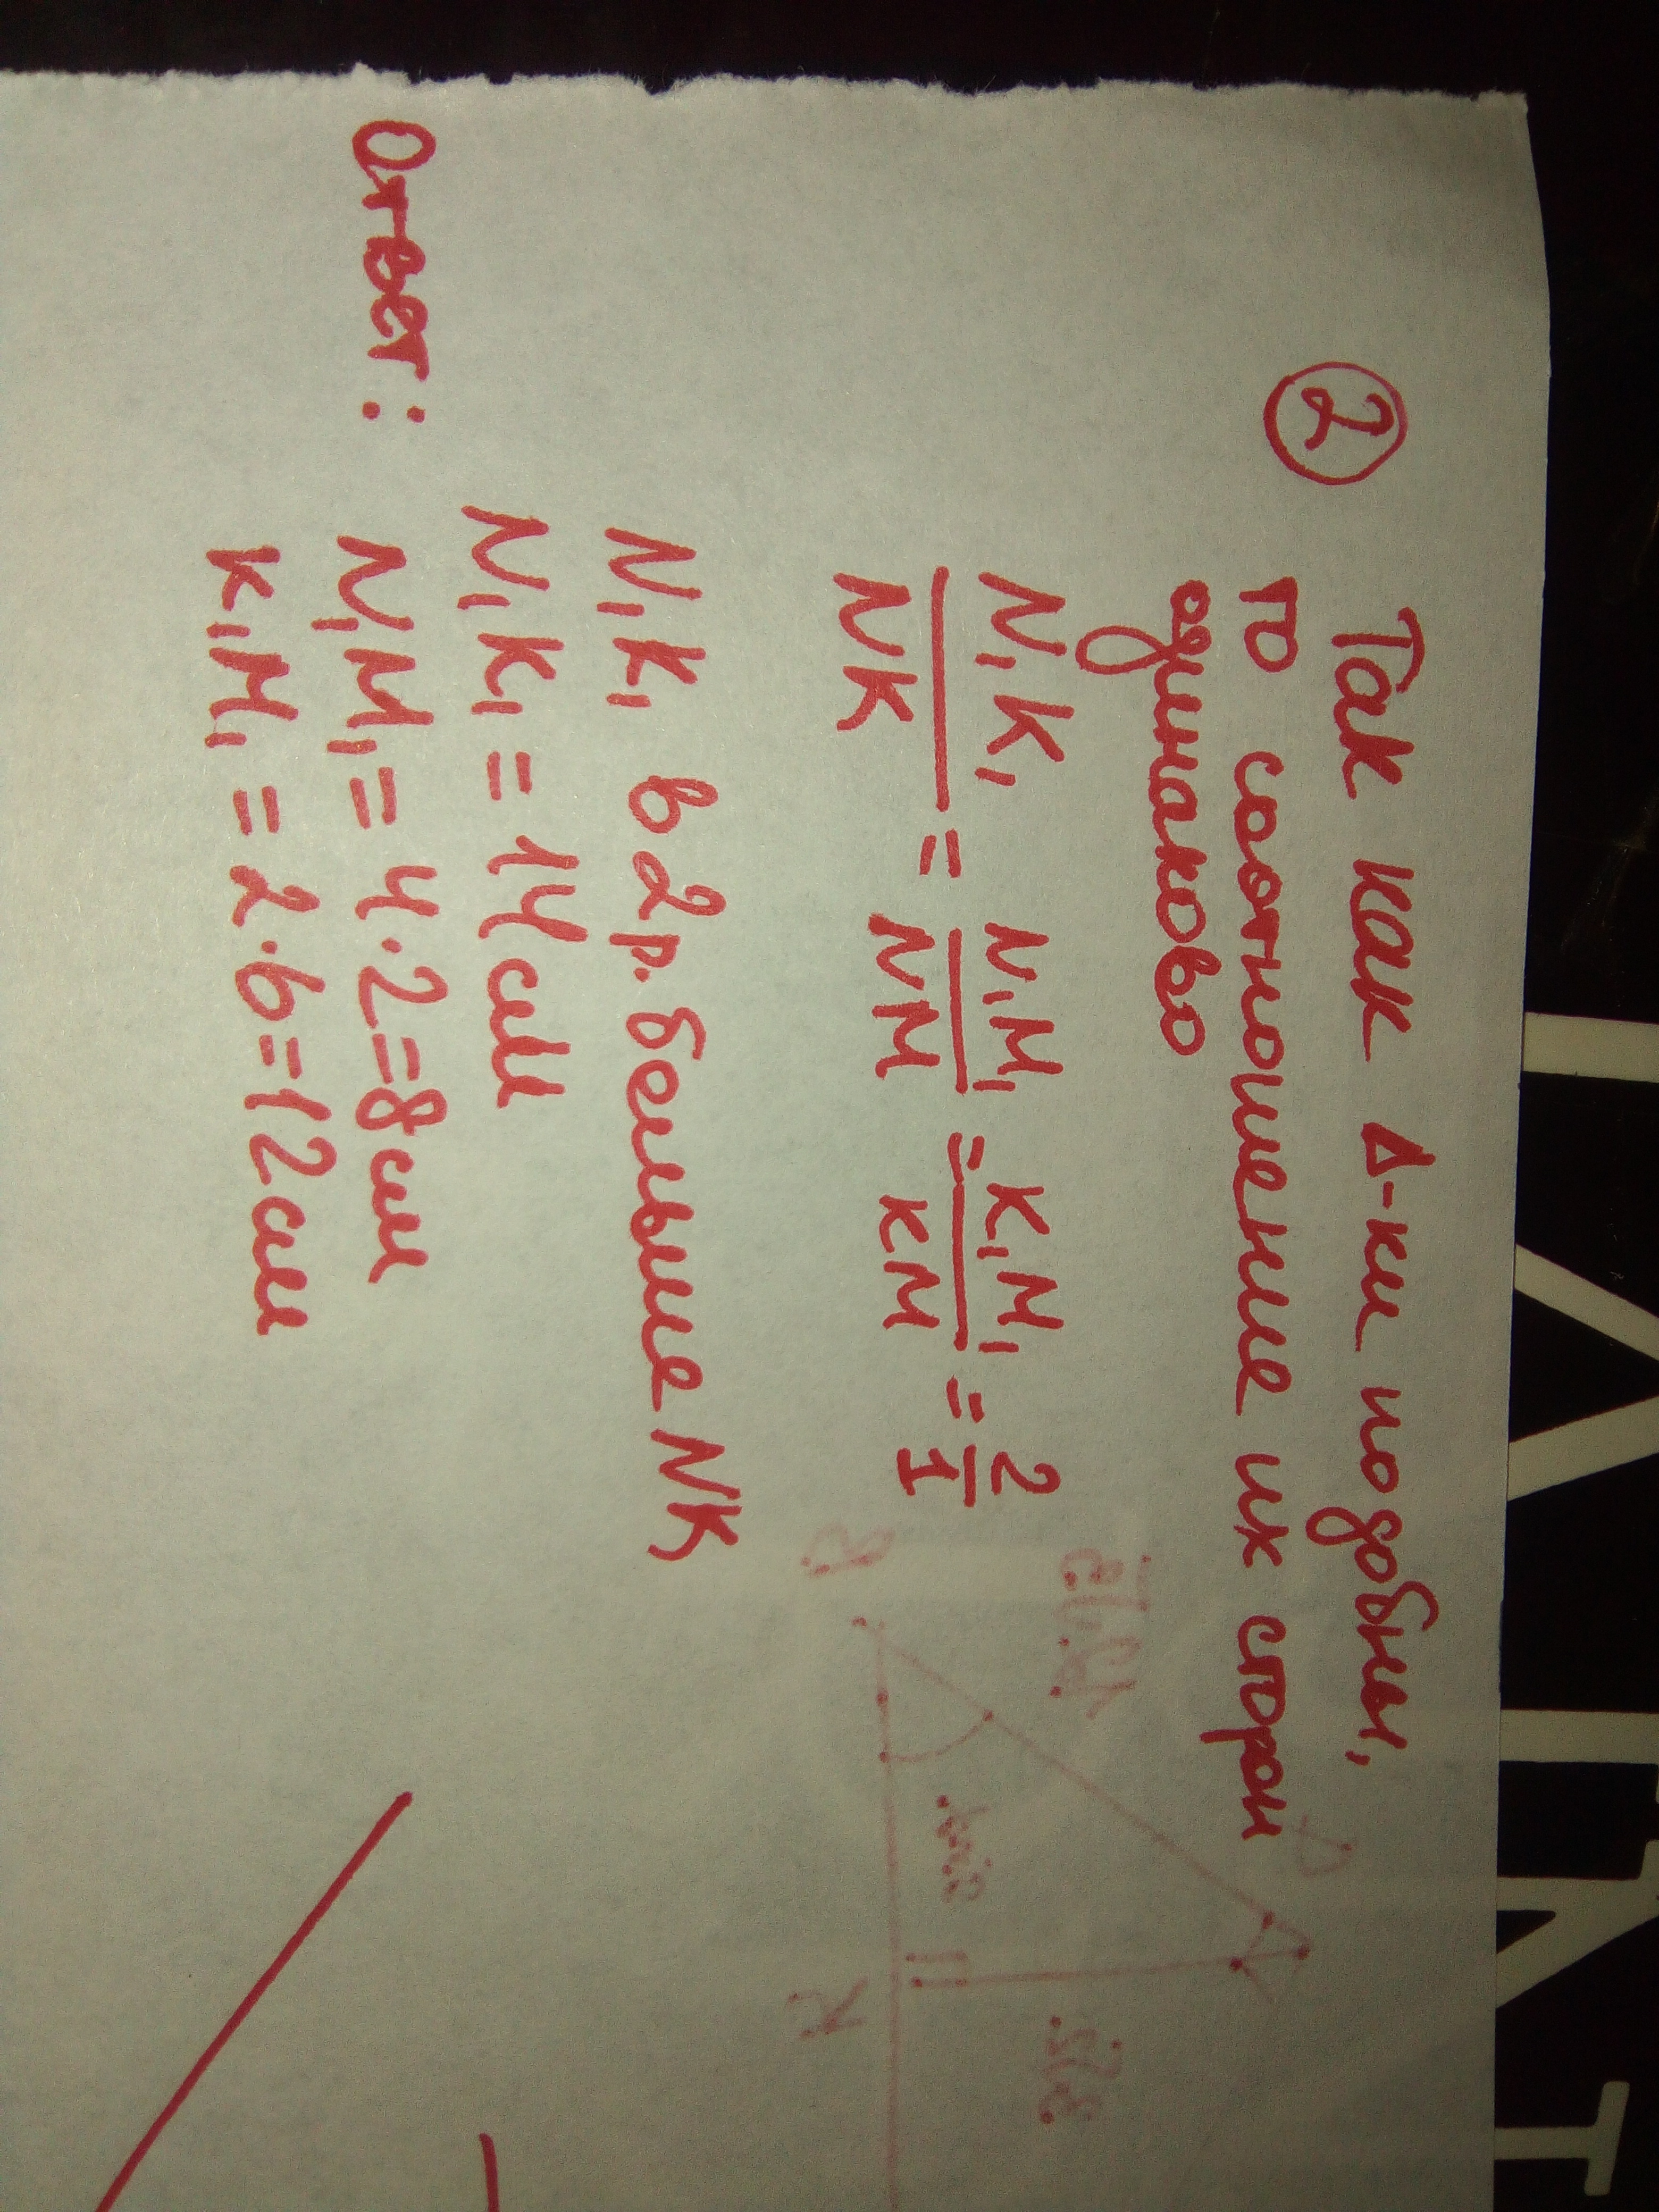 ② Так как Δ-ки подобны,
то соотношение их сторон
одинаково
N₁K₁/NK = N₁M₁/NM = K₁M₁/KM = 2/1
N₁K₁ в 2 р. больше NK
N₁K₁ = 14 см
Ответ: N₁M₁ = 4·2=8 см
K₁M₁ = 2·6=12 см